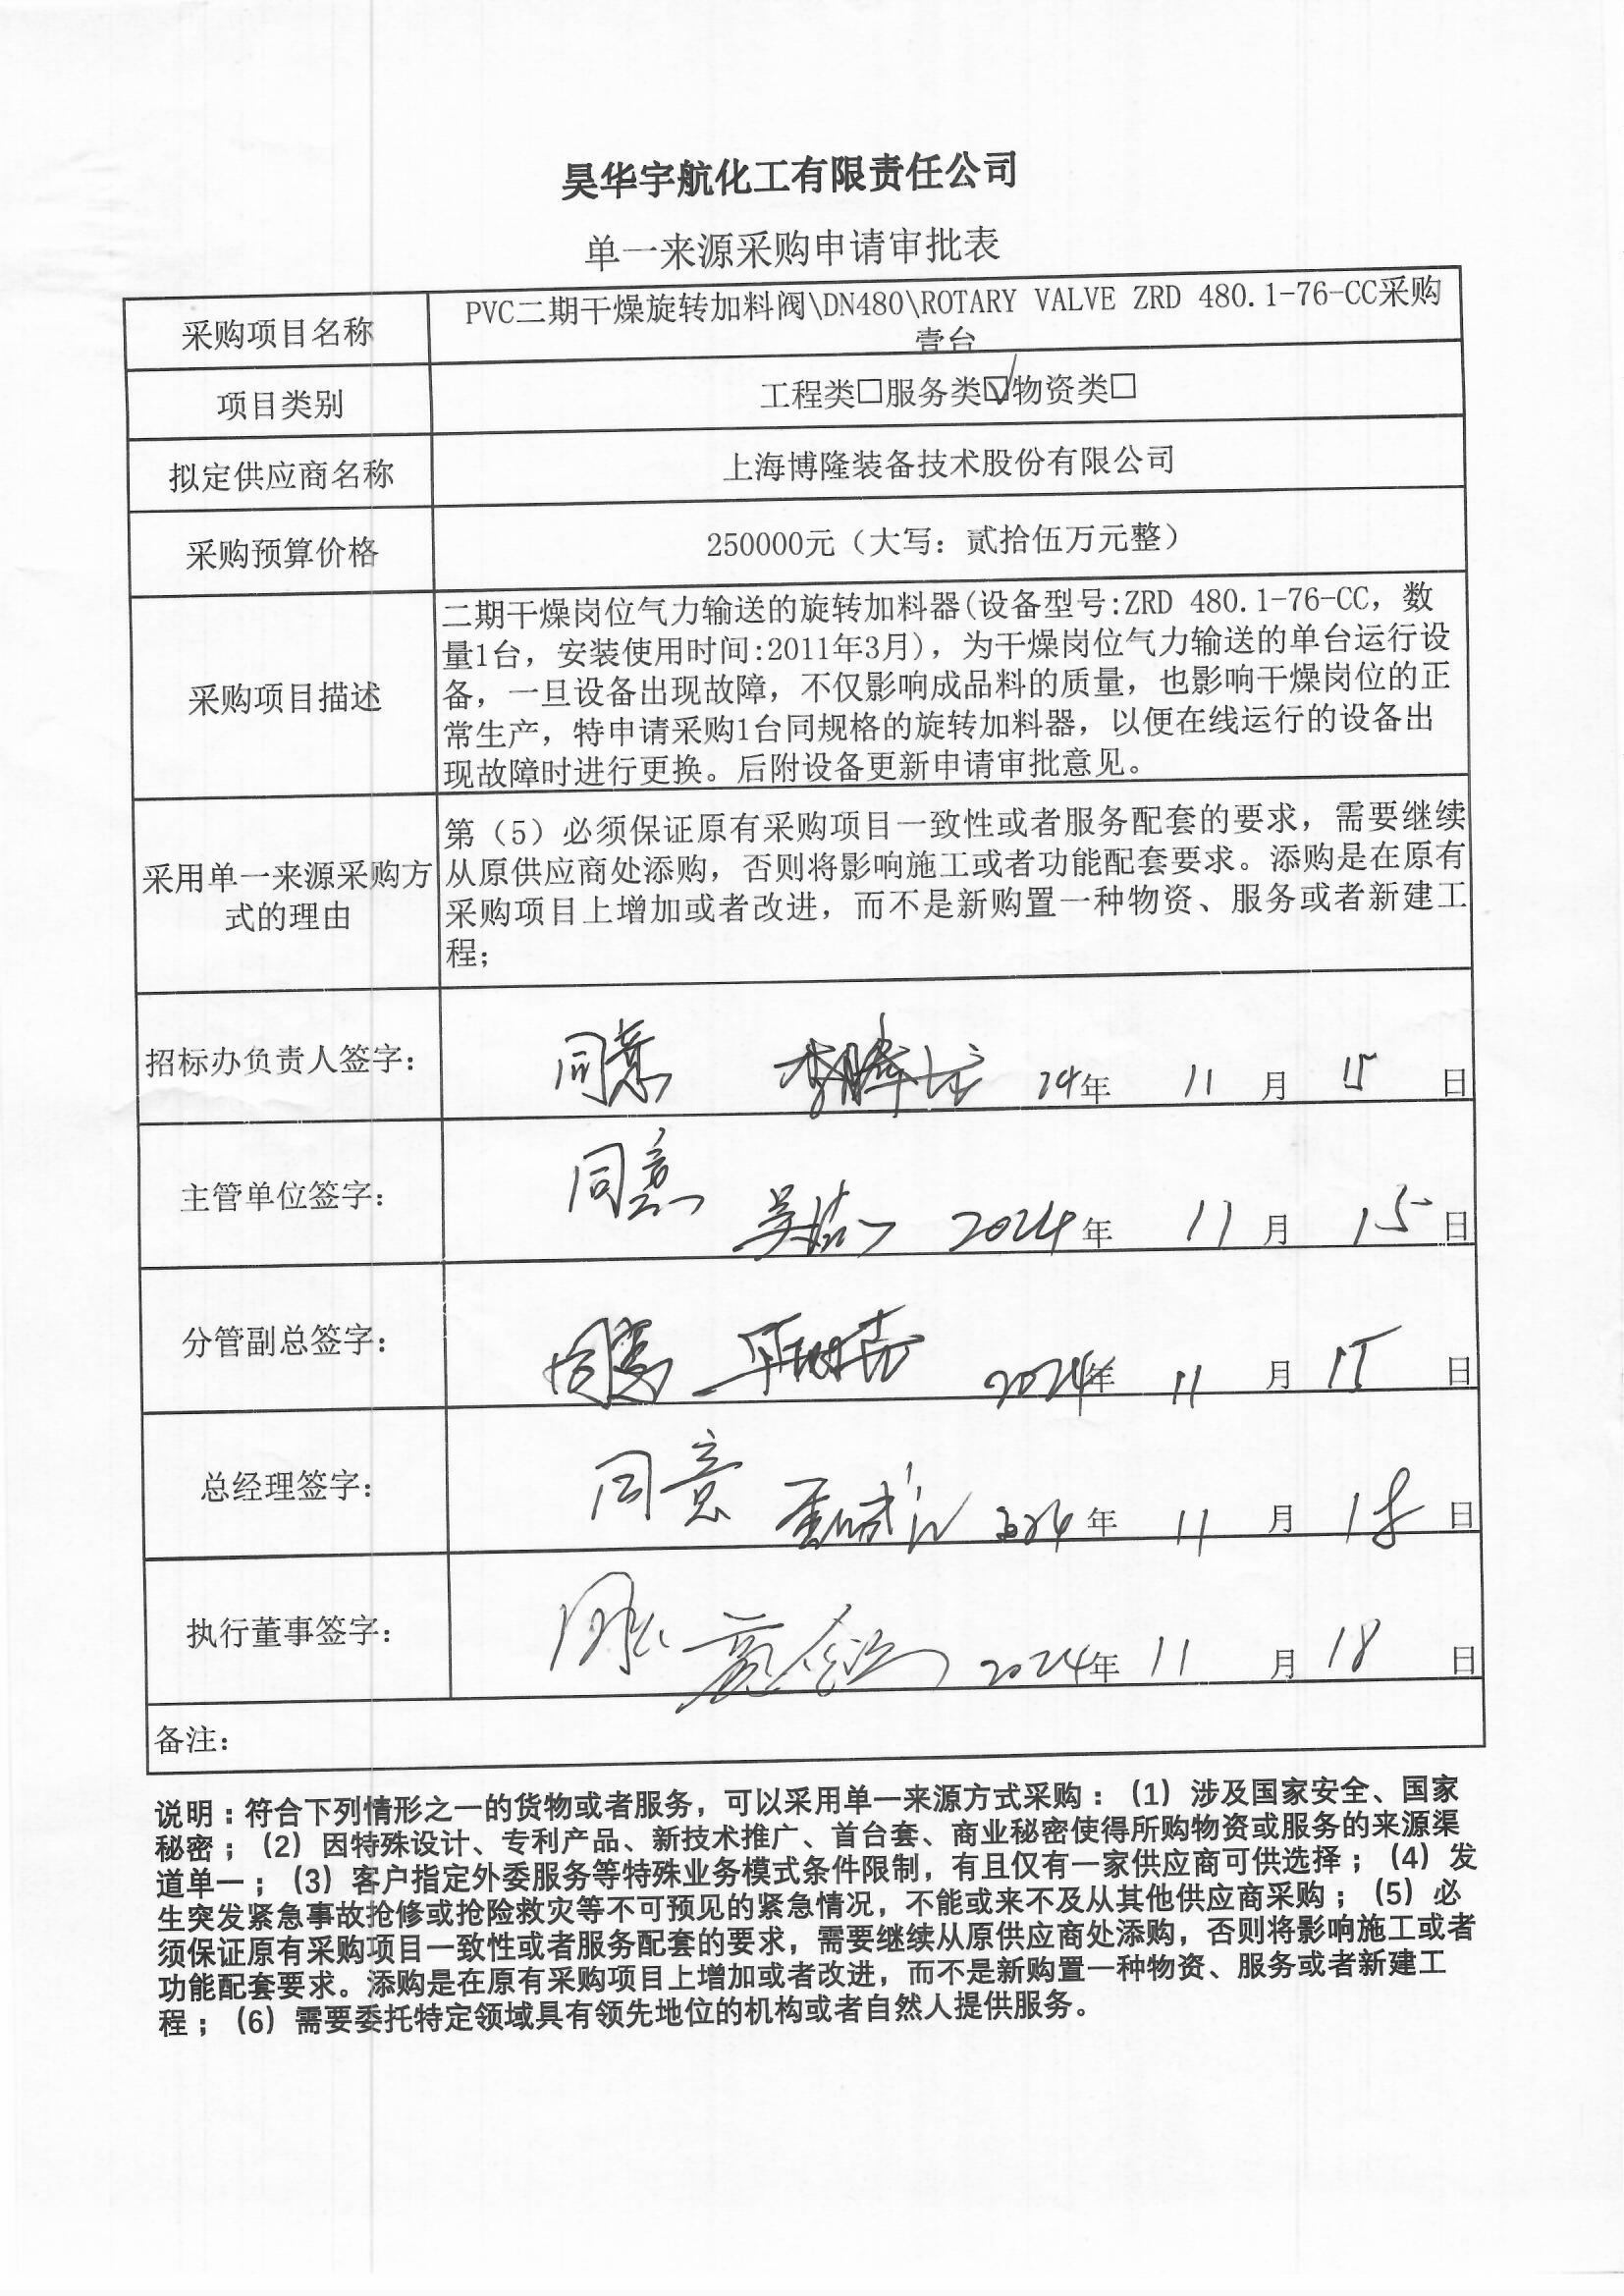 昊华宇航化工有限责任公司
单一来源采购申请审批表
采购项目名称
PVC二期干燥旋转加料阀\DN480\ROTARY VALVE ZRD 480.1-76-CC采购
壹台
项目类别
工程类□服务类☑物资类□
拟定供应商名称
上海博隆装备技术股份有限公司
采购预算价格
250000元（大写：贰拾伍万元整）
采购项目描述
二期干燥岗位气力输送的旋转加料器(设备型号:ZRD 480.1-76-CC，数
量1台，安装使用时间:2011年3月)，为干燥岗位气力输送的单台运行设
备，一旦设备出现故障，不仅影响成品料的质量，也影响干燥岗位的正
常生产，特申请采购1台同规格的旋转加料器，以便在线运行的设备出
现故障时进行更换。后附设备更新申请审批意见。
采用单一来源采购方
式的理由
第（5）必须保证原有采购项目一致性或者服务配套的要求，需要继续
从原供应商处添购，否则将影响施工或者功能配套要求。添购是在原有
采购项目上增加或者改进，而不是新购置一种物资、服务或者新建工
程；
招标办负责人签字：
同意 24年 11月 15日
主管单位签字：
同意 2024年 11月 15日
分管副总签字：
同意 2024年 11月 15日
总经理签字：
同意 2024年 11月 18日
执行董事签字：
同意 2024年 11月 18日
备注：
说明：符合下列情形之一的货物或者服务，可以采用单一来源方式采购：（1）涉及国家安全、国家
秘密；（2）因特殊设计、专利产品、新技术推广、首台套、商业秘密使得所购物资或服务的来源渠
道单一；（3）客户指定外委服务等特殊业务模式条件限制，有且仅有一家供应商可供选择；（4）发
生突发紧急事故抢修或抢险救灾等不可预见的紧急情况，不能或来不及从其他供应商采购；（5）必
须保证原有采购项目一致性或者服务配套的要求，需要继续从原供应商处添购，否则将影响施工或者
功能配套要求。添购是在原有采购项目上增加或者改进，而不是新购置一种物资、服务或者新建工
程；（6）需要委托特定领域具有领先地位的机构或者自然人提供服务。